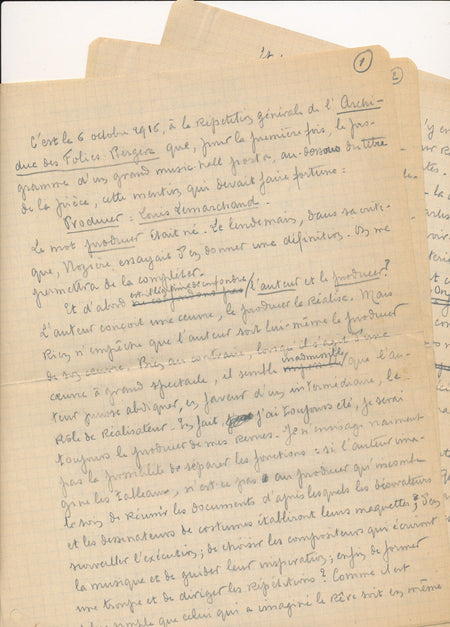 1
C'est le 6 octobre 1916, à la Répétition générale de l'Archi-
duc des Folies Bergère que, pour la première fois, le pro-
gramme d'un grand music-hall porta, au-dessous du titre
de la pièce, cette mention qui devait faire fortune :
Producer : Louis Lemarchand.
Le mot producer était né. Le lendemain, dans sa criti-
que, Nozière essayait d'en donner une définition. On me
permettra de la compléter.
Et d'abord l'auteur et le producer ?
L'auteur conçoit une œuvre, le producer la Réalise. Mais
Rien n'empêche que l'auteur soit lui-même le producer
de son œuvre. Bien au contraire, lorsqu'il s'agit d'une
œuvre à grand spectacle, il semble inadmissible que l'au-
teur puisse abdiquer, en faveur d'un intermédiaire, le
Rôle de Réalisateur. En fait j'ai toujours été, je serai
toujours le producer de mes Revues. Je n'envisage vraiment
pas la possibilité de séparer les fonctions : si l'auteur ima-
gine les tableaux, n'est-ce pas au producer qu'incombe
le soin de Réunir les documents d'après lesquels les décorateurs
et les dessinateurs de costumes établiront leurs maquettes ; d'en
surveiller l'exécution ; de choisir les compositeurs qui écriront
la musique et de guider leur inspiration ; enfin de former
une troupe et de diriger les Répétitions ? Comme il est
simple que celui qui a imaginé le Rêve soit en même
2